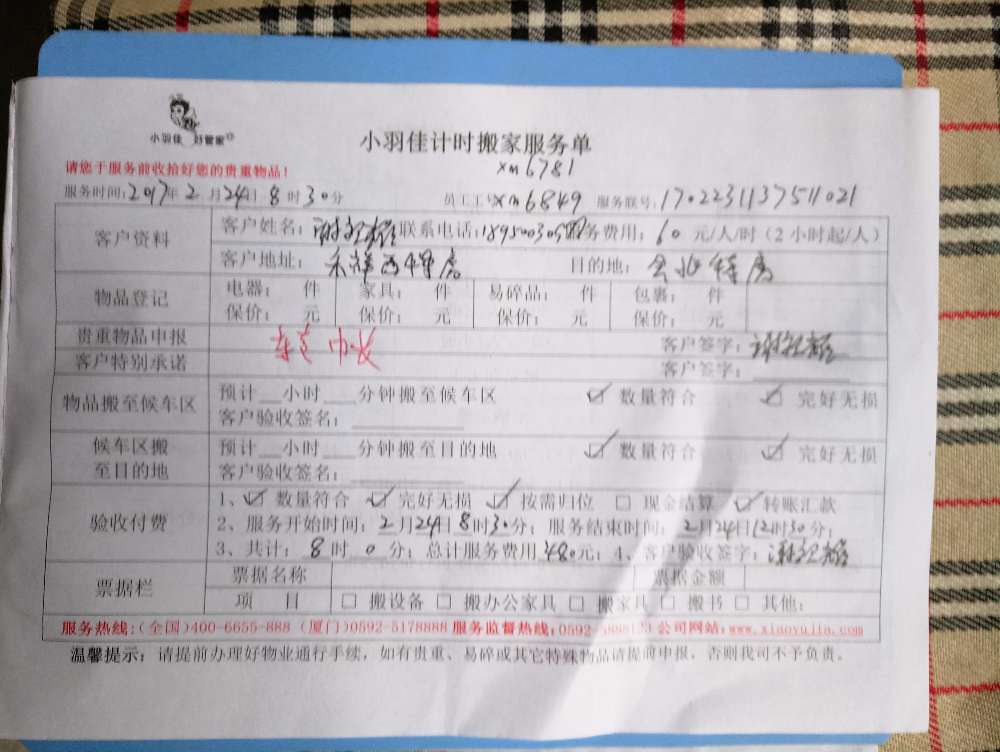 小羽佳 好管家
小羽佳计时搬家服务单
xm6781
请您于服务前收拾好您的贵重物品！
服务时间：2017年2月24日8时30分 员工工号xm6849 服务联号：1702231137511021
客户资料 客户姓名： 联系电话： 服务费用：60元/人/时（2小时起/人）
客户地址： 目的地：
物品登记 电器： 件 家具： 件 易碎品： 件 包裹： 件
保价： 元 保价： 元 保价： 元 保价： 元
贵重物品申报 客户签字：
客户特别承诺 客户签字：
物品搬至候车区 预计__小时___分钟搬至候车区 ☑ 数量符合 ☑ 完好无损
客户验收签名：
候车区搬至目的地 预计__小时___分钟搬至目的地 ☑ 数量符合 ☑ 完好无损
客户验收签名：
验收付费 1、☑ 数量符合 ☑ 完好无损 ☑ 按需归位 □ 现金结算 ☑ 转账汇款
2、服务开始时间：2月24日8时30分；服务结束时间：2月24日12时30分；
3、共计：8时0分；总计服务费用480元；4、客户验收签字：
票据栏 票据名称 票据金额
项 目 □ 搬设备 □ 搬办公家具 □ 搬家具 □ 搬书 □ 其他：
服务热线：（全国）400-6655-888（厦门）0592-5178888 服务监督热线： 公司网站：www.xiaoyujia.com
温馨提示：请提前办理好物业通行手续，如有贵重、易碎或其它特殊物品请提前申报，否则我司不予负责。